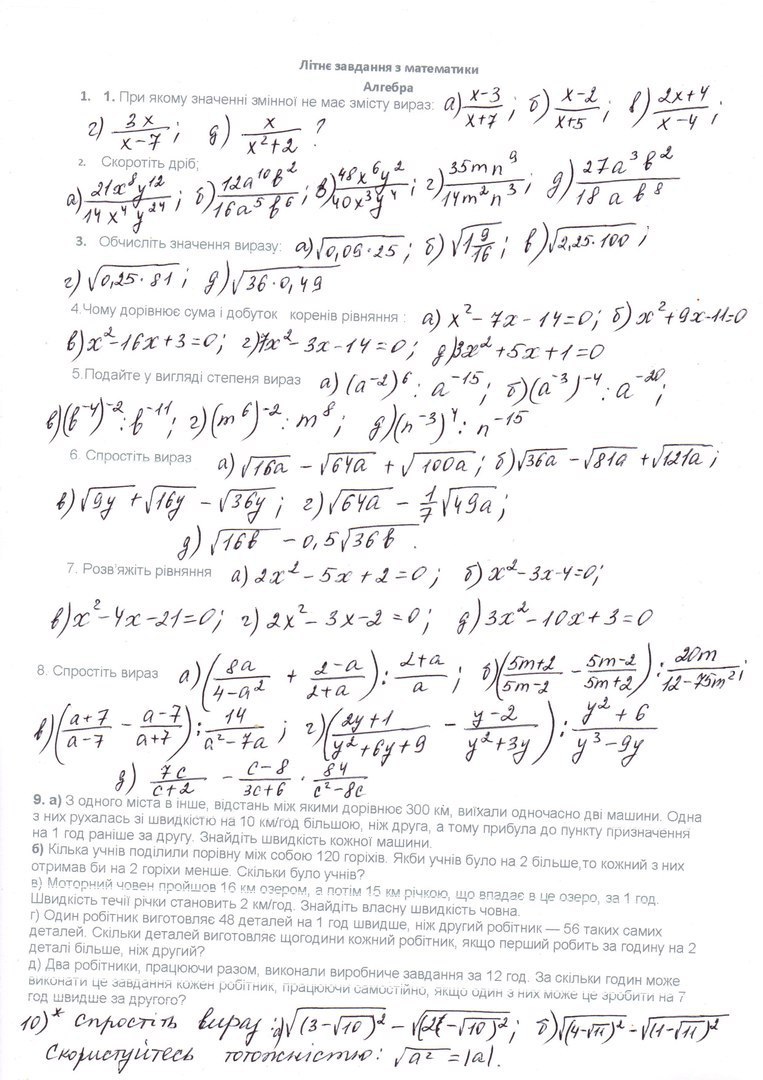 Літнє завдання з математики
Алгебра
1. 1. При якому значенні змінної не має змісту вираз: а) (x-3)/(x+7); б) (x-2)/(x+5); в) (2x+4)/(x-4);
г) 3x/(x-7); д) x/(x²+2) ?
2. Скоротіть дріб;
а) 21x⁸y¹²/14x⁴y²⁴; б) 12a¹⁰b²/16a⁵b⁶; в) 48x⁶y²/40x³y⁴; г) 35mn⁹/14m²n³; д) 27a³b²/18ab⁸
3. Обчисліть значення виразу: а) √(0,09·25); б) √(1 9/16); в) √(2,25·100);
г) √(0,25·81); д) √(36·0,49)
4.Чому дорівнює сума і добуток коренів рівняння : а) x²-7x-14=0; б) x²+9x-11=0
в) x²-16x+3=0; г) 7x²-3x-14=0; д) 3x²+5x+1=0
5.Подайте у вигляді степеня вираз а) (a⁻²)⁶ : a⁻¹⁵; б) (a⁻³)⁻⁴ : a⁻²⁰;
в) (b⁻⁴)⁻² : b⁻¹¹; г) (m⁶)⁻² : m⁸; д) (n⁻³)⁴ : n⁻¹⁵
6. Спростіть вираз а) √16a - √64a + √100a; б) √36a - √81a + √121a;
в) √9y + √16y - √36y; г) √64a - 1/7 √49a;
д) √16b - 0,5√36b.
7. Розв'яжіть рівняння а) 2x²-5x+2=0; б) x²-3x-4=0;
в) x²-4x-21=0; г) 2x²-3x-2=0; д) 3x²-10x+3=0
8. Спростіть вираз а) (8a/(4-a²) + (2-a)/(2+a)) : (2+a)/a; б) ((5m+2)/(5m-2) - (5m-2)/(5m+2)) : 20m/(12-75m²);
в) ((a+7)/(a-7) - (a-7)/(a+7)) : 14/(a²-7a); г) ((2y+1)/(y²+6y+9) - (y-2)/(y²+3y)) : (y²+6)/(y³-9y)
д) 7c/(c+2) - (c-8)/(3c+6) · 84/(c²-8c)
9. а) З одного міста в інше, відстань між якими дорівнює 300 км, виїхали одночасно дві машини. Одна
з них рухалась зі швидкістю на 10 км/год більшою, ніж друга, а тому прибула до пункту призначення
на 1 год раніше за другу. Знайдіть швидкість кожної машини.
б) Кілька учнів поділили порівну між собою 120 горіхів. Якби учнів було на 2 більше,то кожний з них
отримав би на 2 горіхи менше. Скільки було учнів?
в) Моторний човен пройшов 16 км озером, а потім 15 км річкою, що впадає в це озеро, за 1 год.
Швидкість течії річки становить 2 км/год. Знайдіть власну швидкість човна.
г) Один робітник виготовляє 48 деталей на 1 год швидше, ніж другий робітник — 56 таких самих
деталей. Скільки деталей виготовляє щогодини кожний робітник, якщо перший робить за годину на 2
деталі більше, ніж другий?
д) Два робітники, працюючи разом, виконали виробниче завдання за 12 год. За скільки годин може
виконати це завдання кожен робітник, працюючи самостійно, якщо один з них може це зробити на 7
год швидше за другого?
10)* Спростіть вираз: а) √(3-√10)² - √( -√10)²; б) √(4-√11)² - √(1-√11)²
Скористуйтесь тотожністю: √a² = |a|.